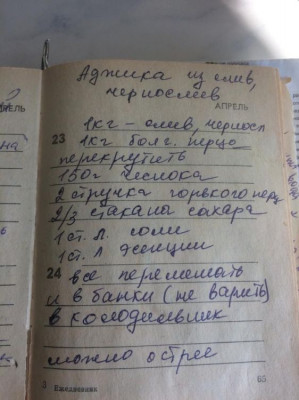 Аджика из слив,
чернослив
АПРЕЛЬ
1кг - слив, черносл
23 1кг болг. перца
перекрутить
150г чеснока
2 стручка горького перц
2/3 стакана сахара
1 ст. л. соли
1 ст. л. эсенции
24 все перемешать
и в банки (не варить)
в холодильник
можно острее
3 Ежедневник 65